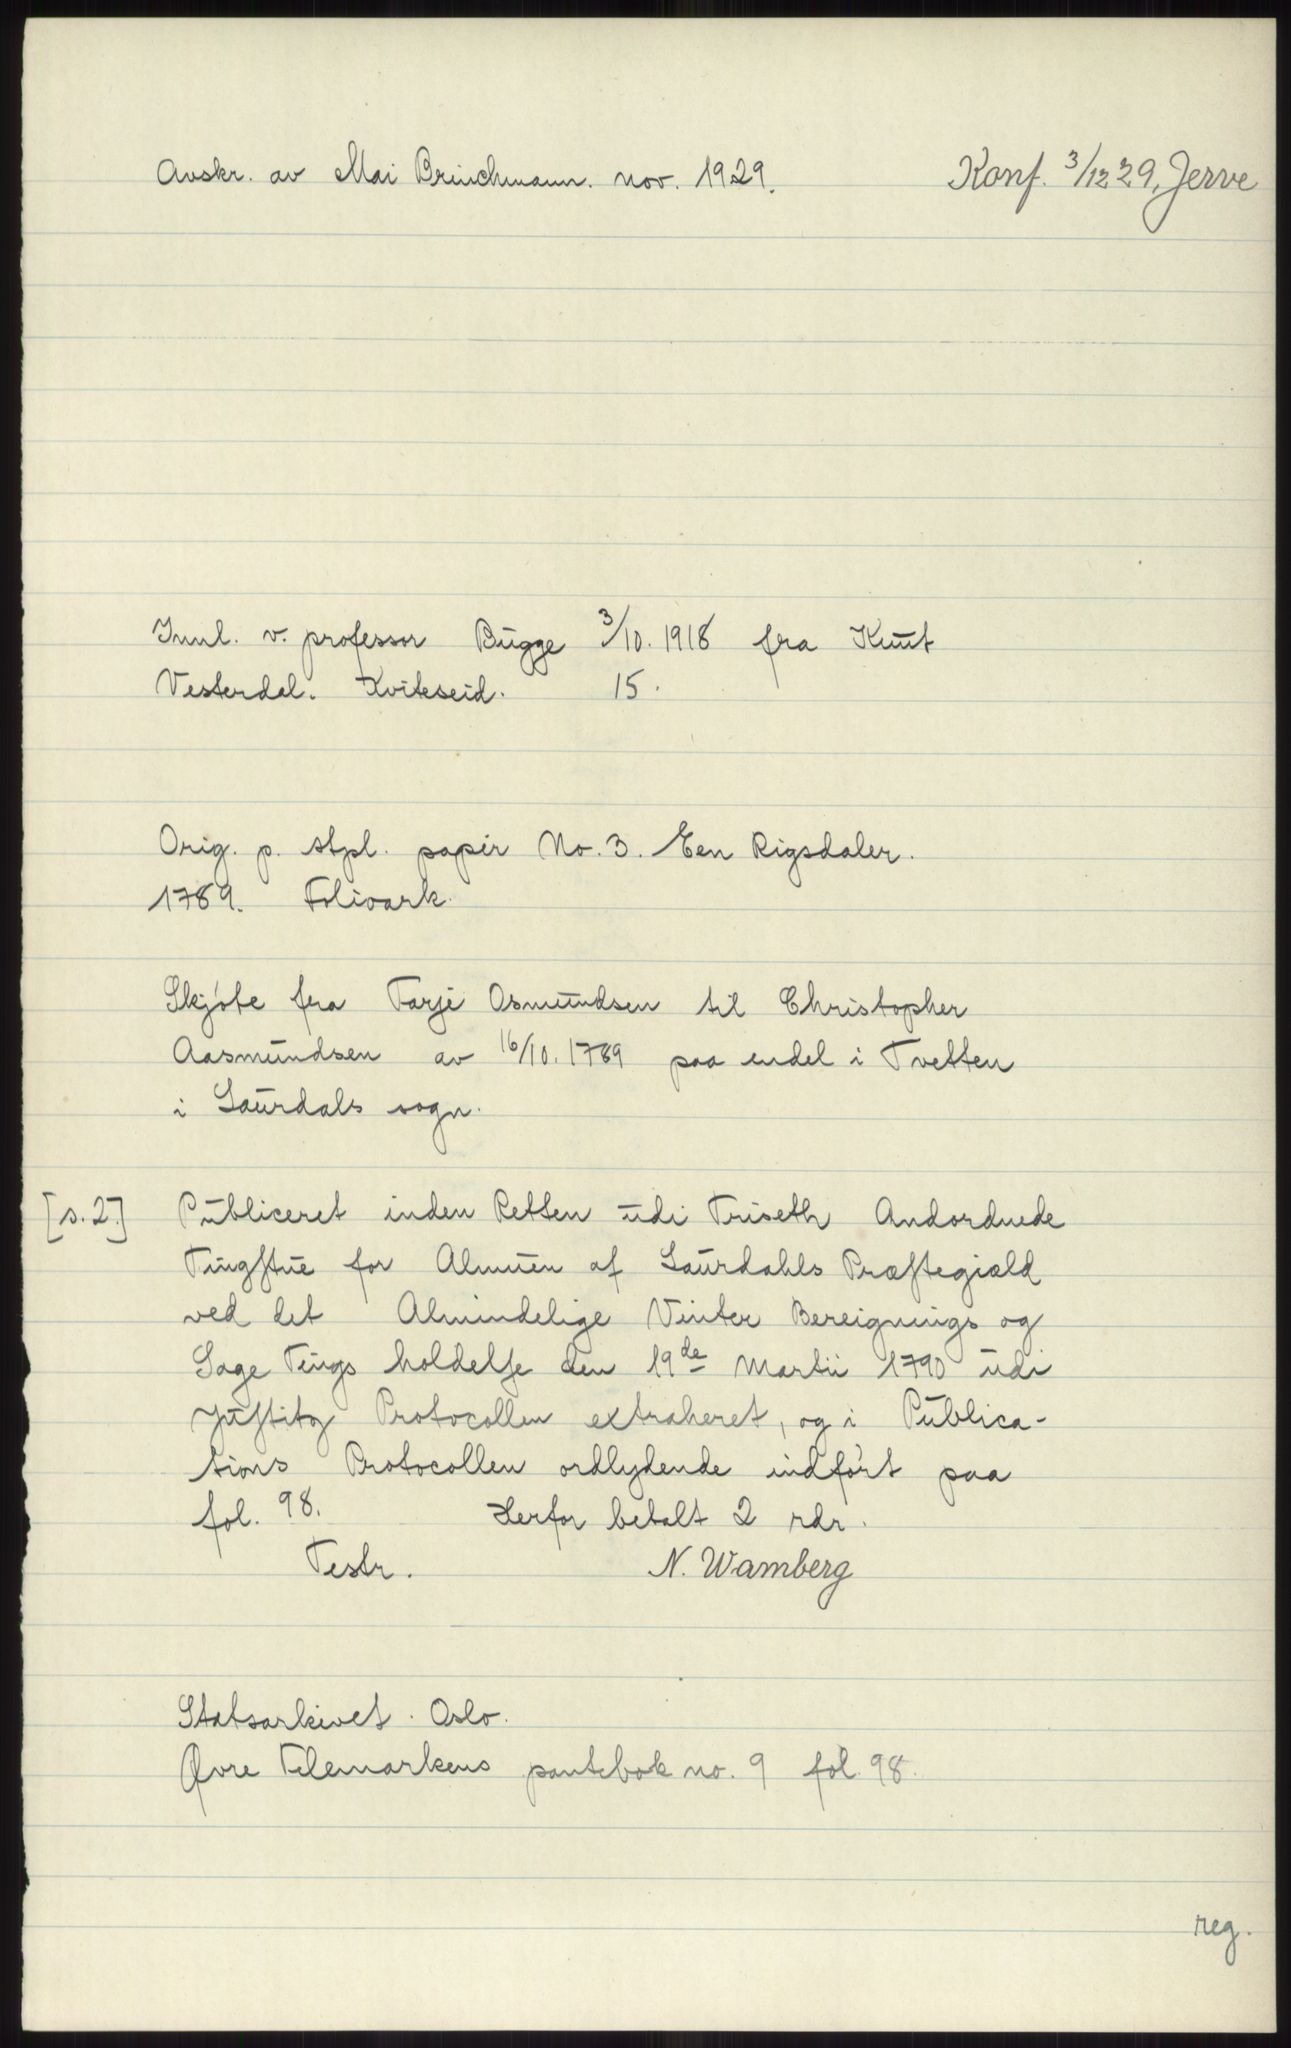 Avskr. av Mai Brinchmann. nov. 1929.
Konf. 3/12 29, Jerve
Innl. v. professor Bugge 3/10. 1918 fra Knut
Vesterdal. Kviteseid. 15.
Orig. p. stpl. papir No. 3. Een Rigsdaler.
1789. Folioark.
Skjøte fra Tarje Osmundsen til Christopher
Aasmundsen av 16/10. 1789 paa endel i Tvetten
i Laurdals sogn.
[s. 2.] Publiceret inden Retten udi Triseth Andordnede
Tingstue for Almuen af Laurdahls Præstegiæld
ved det Almindelige Vinter Bereignings og
Sage Tings holdelse den 19de Martii 1790 udi
Justitz Protocollen extraheret, og i Publica-
tions Protocollen ordlydende indført paa
fol. 98. Herfor betalt 2 rdr.
Testr. N. Wamberg
Statsarkivet. Oslo.
Øvre Telemarkens pantebok no. 9 fol. 98.
reg.